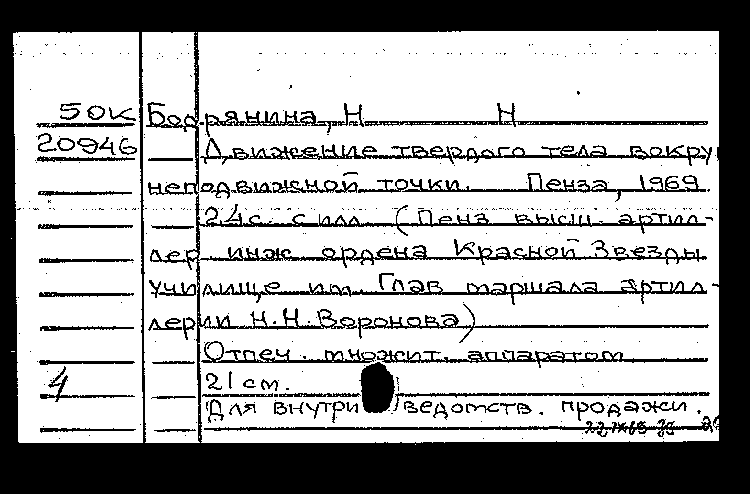 50К Бодрянина, Н Н
20946 Движение твердого тела вокру
неподвижной точки. Пенза, 1969
24с. с илл. (Пенз высш. артил-
лер инж ордена Красной Звезды
училище им. Глав маршала артил-
лерии Н.Н. Воронова)
Отпеч. множит. аппаратом
4 21 см.
Для внутриведомств. продажи.